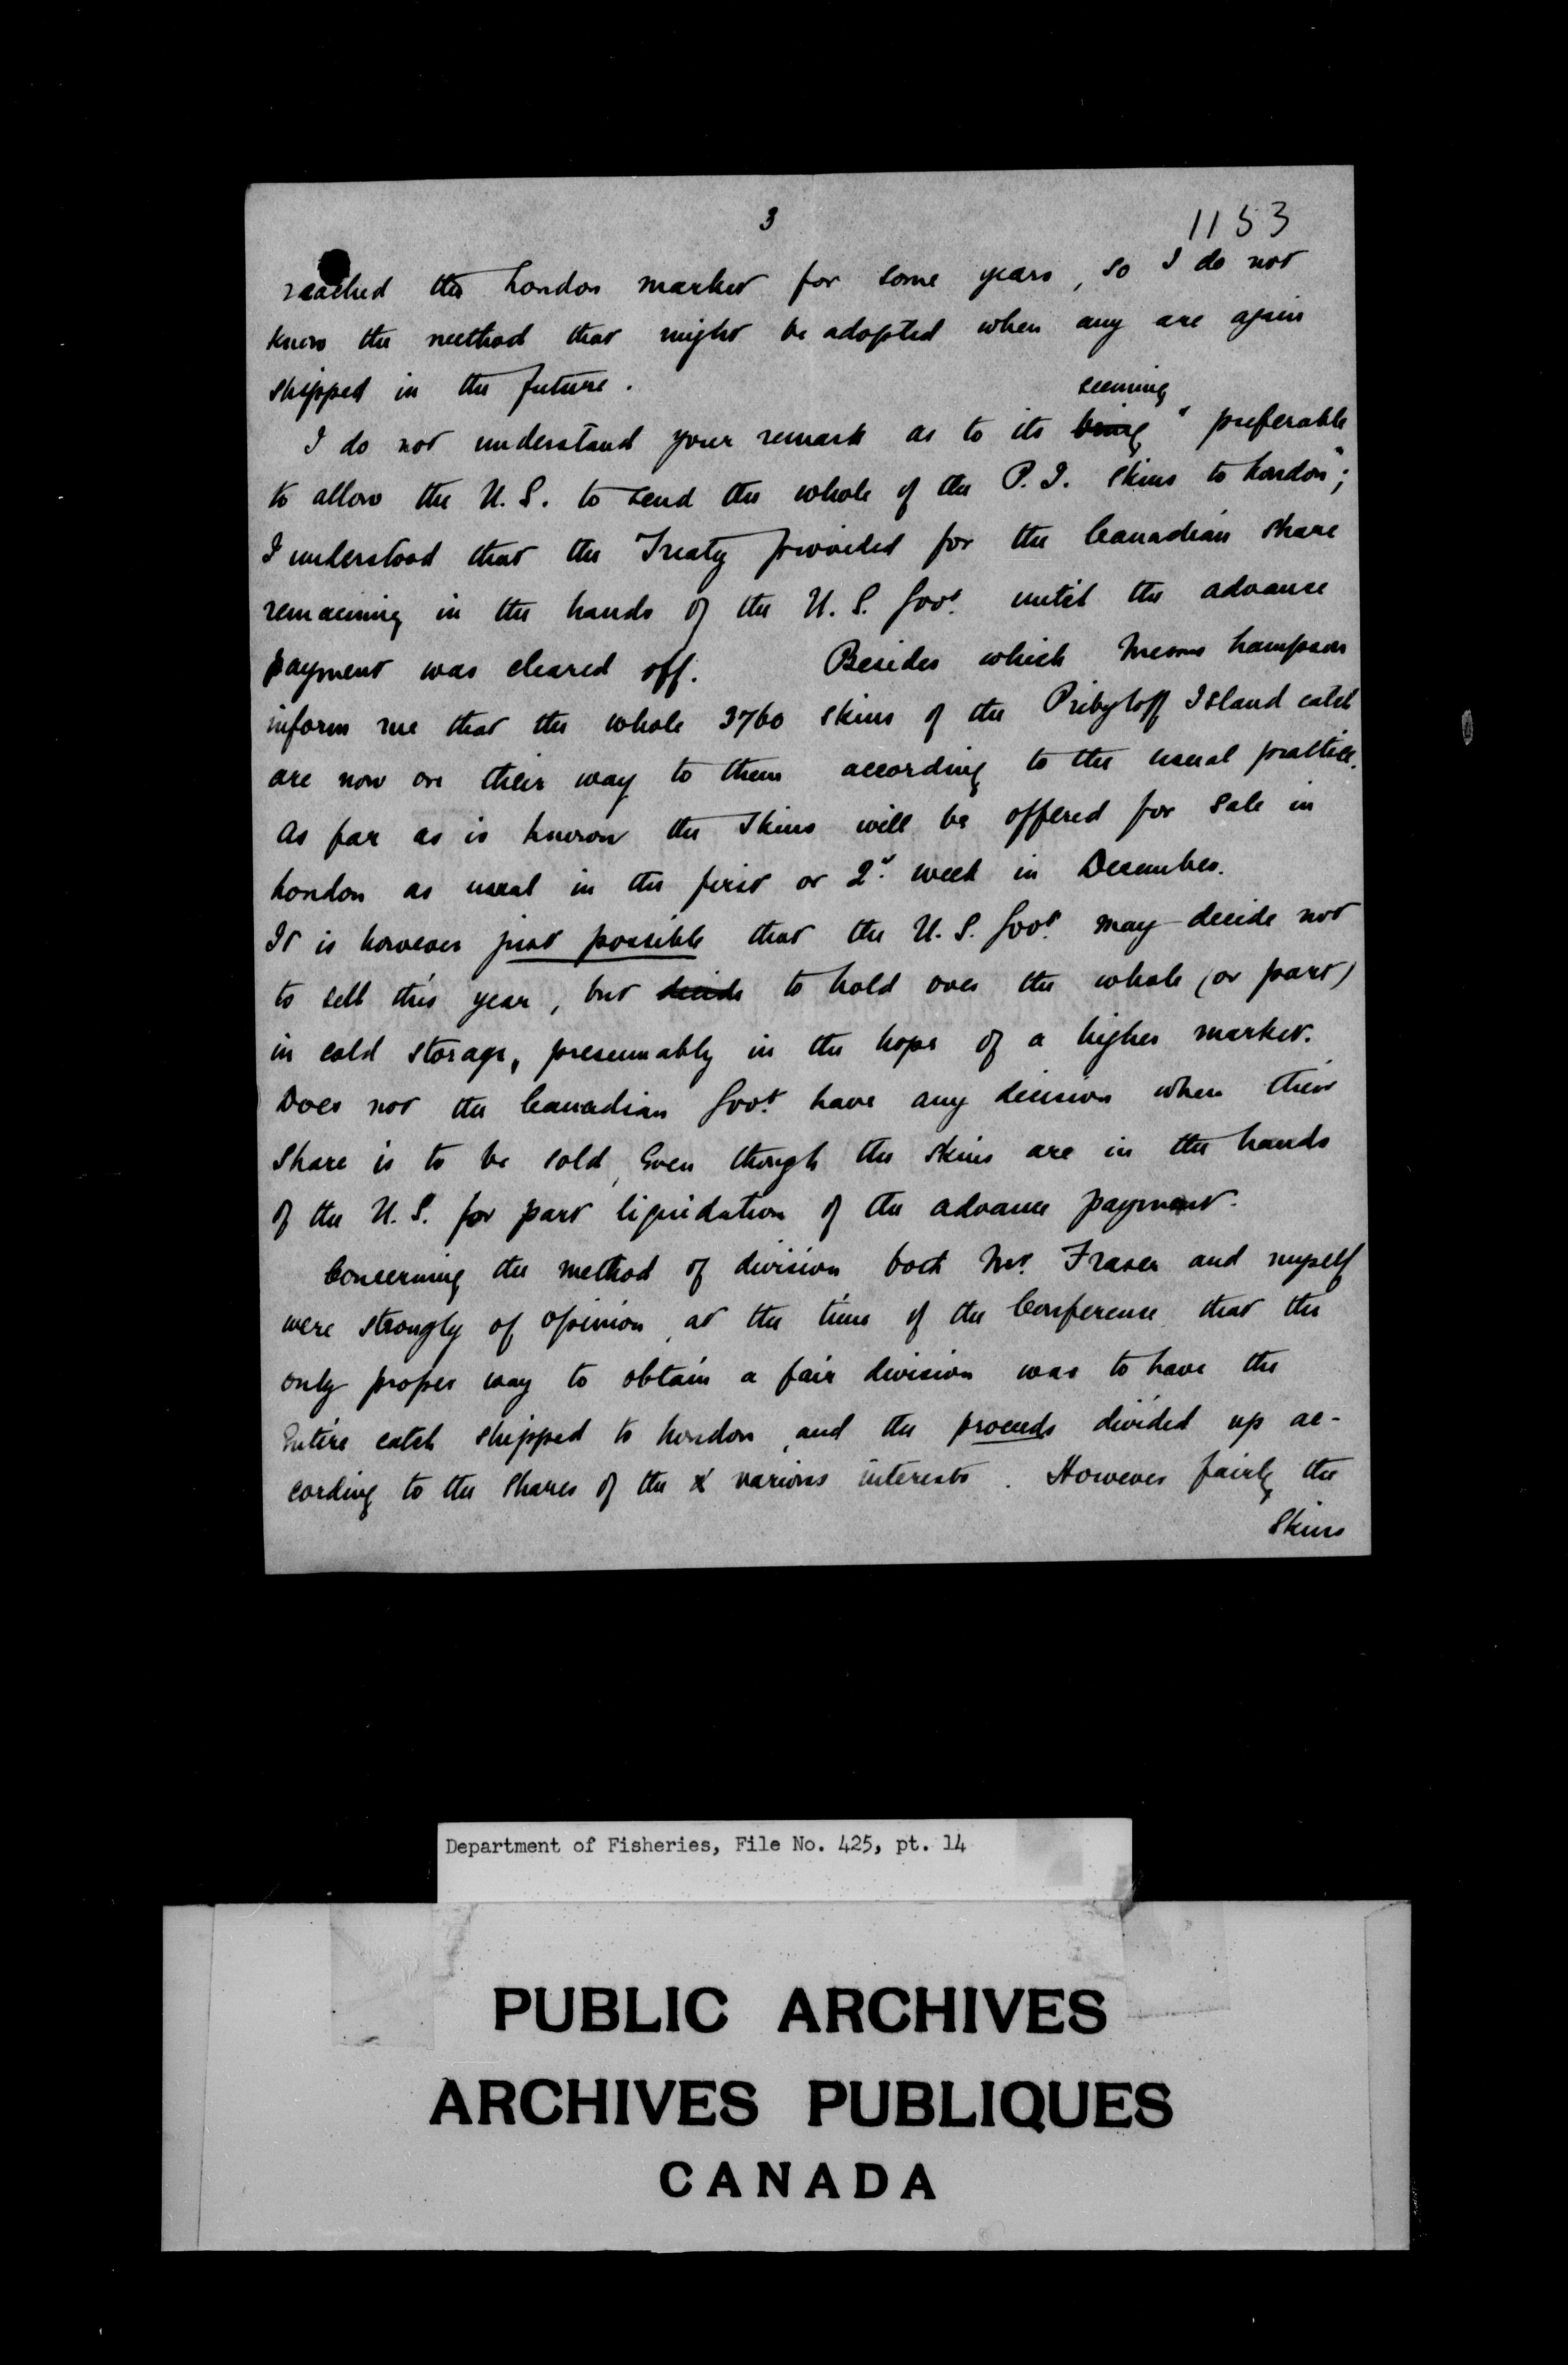 3
1153
reached the London market for some years, so I do not
know the method that might be adopted when any are again
shipped in the future.
seeming
I do not understand your remark as to its being "preferable
to allow the U.S. to send the whole of the P.I. skins to London";
I understood that the Treaty provided for the Canadian share
remaining in the hands of the U.S. Govt. until the advance
payment was cleared off. Besides which Messrs Lampson
inform me that the whole 3760 skins of the Pribyloff Island catch
are now on their way to them according to the usual practice.
As far as is known the skins will be offered for sale in
London as usual in the first or 2d. week in December.
It is however just possible that the U.S. Govt. may decide not
to sell this year, but decide to hold over the whole (or part)
in cold storage, presumably in the hope of a higher market.
Does not the Canadian Govt. have any decision when their
share is to be sold, Even though the skins are in the hands
of the U.S. for part liquidation of the advance payment.
Concerning the method of division both Mr. Fraser and myself
were strongly of opinion, at the time of the Conference that the
only proper way to obtain a fair division was to have the
Entire catch shipped to London, and the proceeds divided up ac-
cording to the shares of the various interests. However fairly the
skins
Department of Fisheries, File No. 425, pt. 14
PUBLIC ARCHIVES
ARCHIVES PUBLIQUES
CANADA